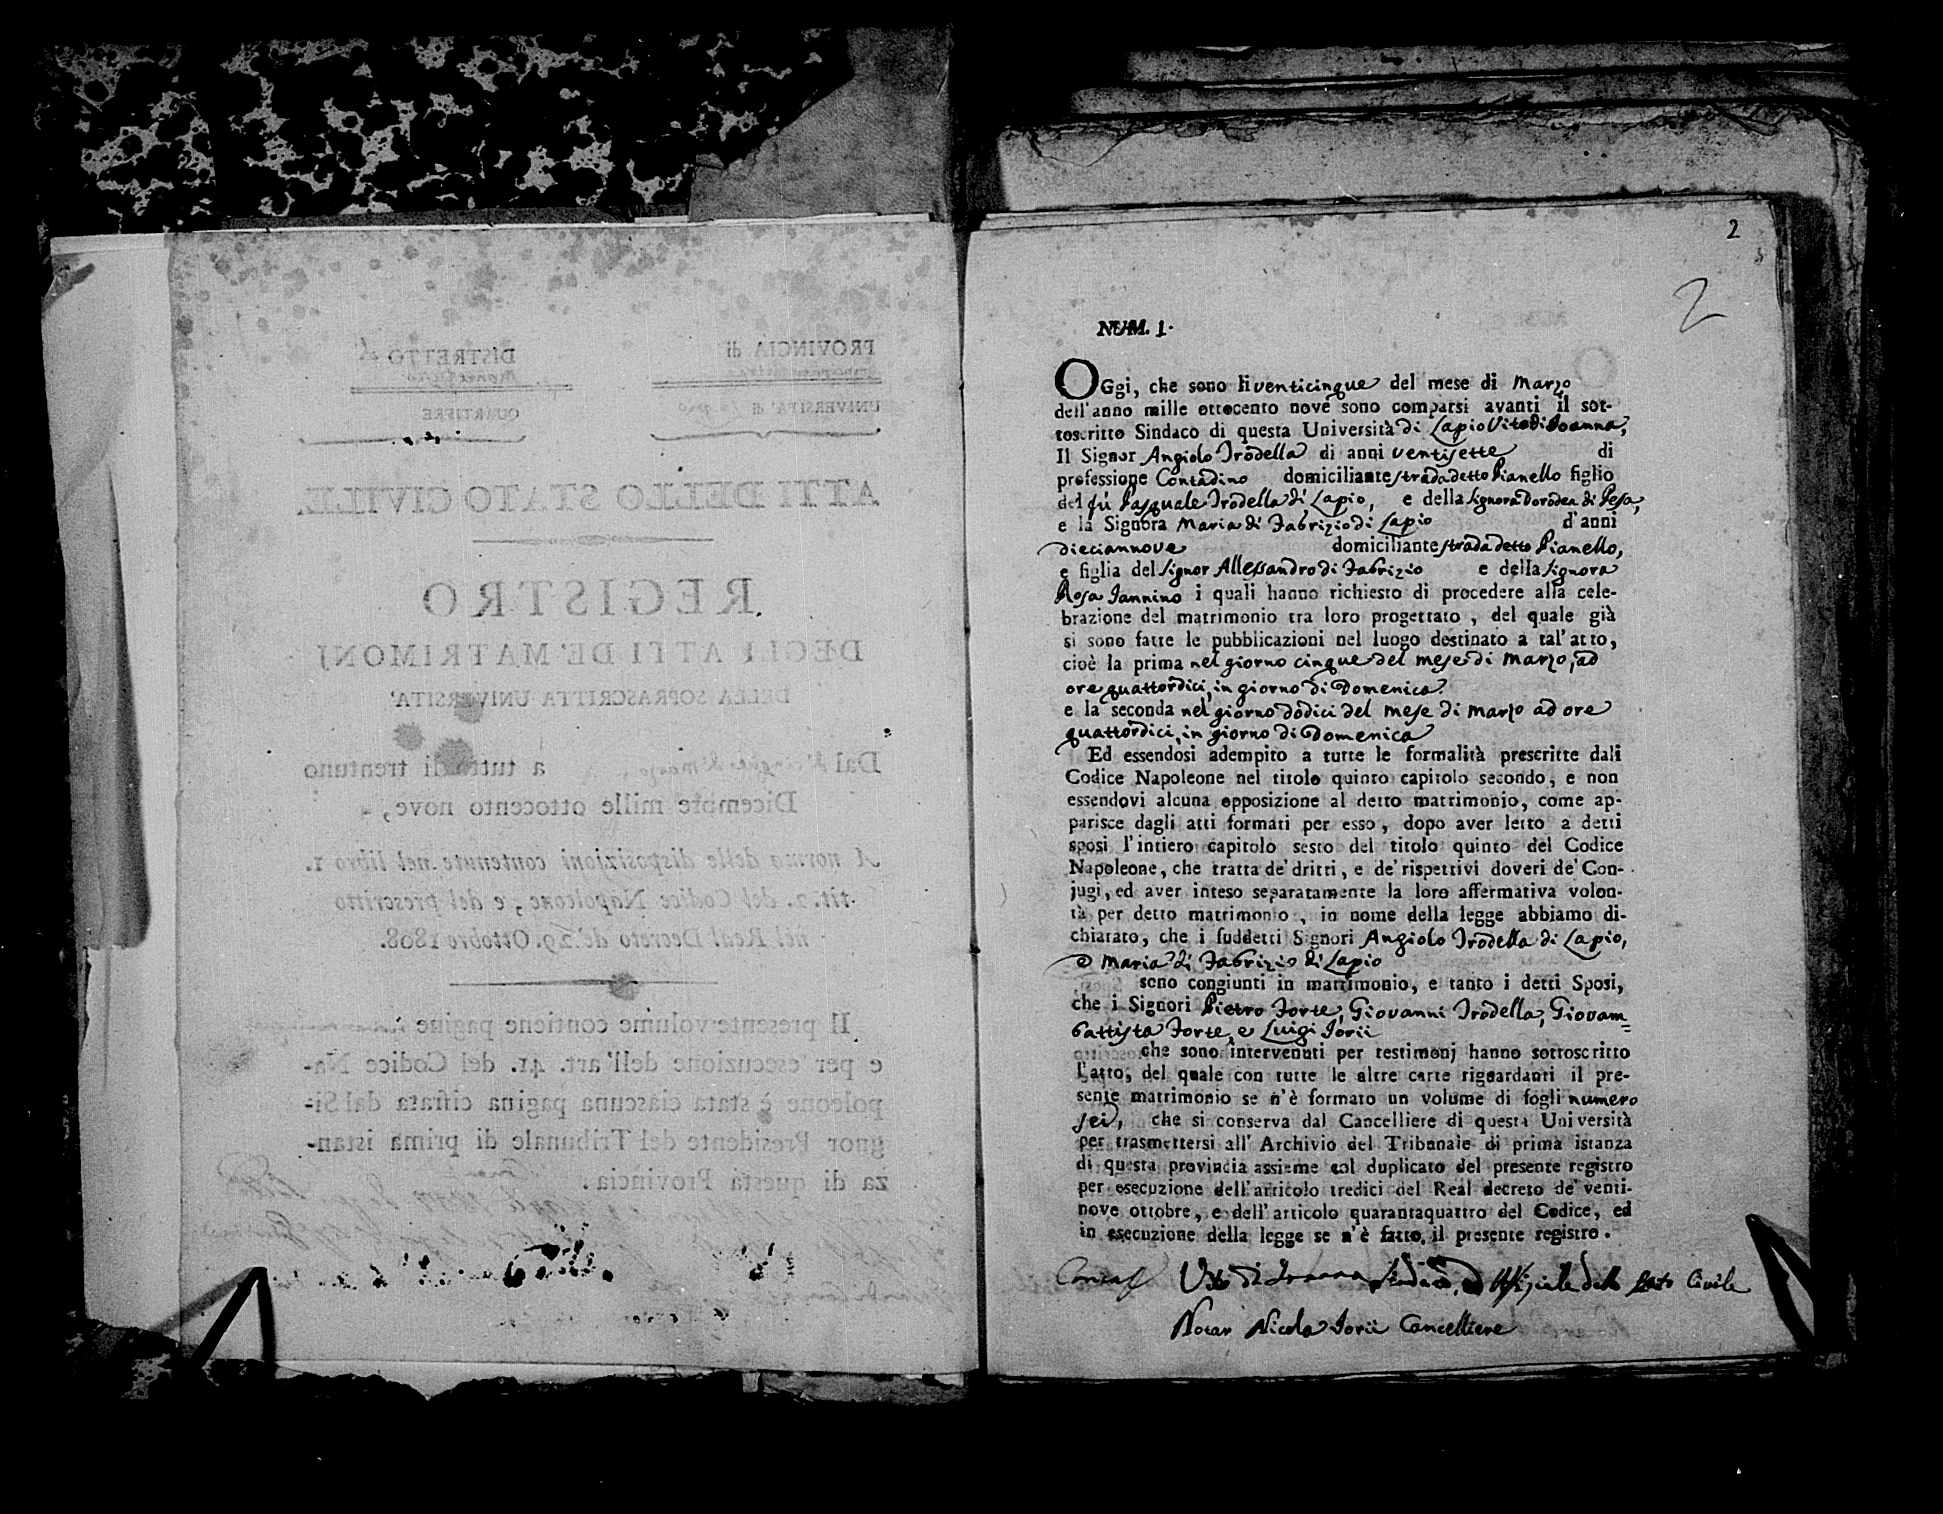 PROVINCIA di
DISTRETTO di
UNIVERSITA' di Lapio
QUARTIERE
ATTI DELLO STATO CIVILE.
REGISTRO
DEGLI ATTI DE' MATRIMONJ
DELLA SOPRASCRITTA UNIVERSITA'
Dal dì cinque di marzo a tutto li trentuno
Dicembre mille ottocento nove,
A norma delle disposizioni contenute nel libro 1.
tit. 2. del Codice Napoleone, e del prescritto
nel Real Decreto de' 29. Ottobre 1808.
Il presente volume contiene pagine
e per esecuzione dell'art. 41. del Codice Na-
poleone è stata ciascuna pagina cifrata dal Si-
gnor Presidente del Tribunale di prima istan-
za di questa Provincia.
2
2
NUM. 1.
OGgi, che sono li venticinque del mese di Marzo
dell'anno mille ottocento nove sono comparsi avanti il sot-
toscritto Sindaco di questa Università di Lapio Vito di Ioanna,
Il Signor Angiolo Trodella di anni ventisette di
professione Contadino domiciliante strada detto Pianello figlio
del fù Pasquale Trodella di Lapio, e della Signora Dorodea di Pesa,
e la Signora Maria di Fabrizio di Lapio d'anni
dieciannove domiciliante strada detto Pianello,
e figlia del Signor Allessandro di Fabrizio e della Signora
Rosa Iannino i quali hanno richiesto di procedere alla cele-
brazione del matrimonio tra loro progettato, del quale già
si sono fatte le pubblicazioni nel luogo destinato a tal'atto,
cioè la prima nel giorno cinque del mese di Marzo, ad
ore quattordici, in giorno di Domenica.
e la seconda nel giorno dodici del mese di Marzo ad ore
quattordici, in giorno di Domenica
Ed essendosi adempito a tutte le formalità prescritte dall
Codice Napoleone nel titolo quinto capitolo secondo, e non
essendovi alcuna opposizione al detto matrimonio, come ap-
parisce dagli atti formati per esso, dopo aver letto a detti
sposi l'intiero capitolo sesto del titolo quinto del Codice
Napoleone, che tratta de' dritti, e de' rispettivi doveri de' Con-
jugi, ed aver inteso separatamente la loro affermativa volon-
tà per detto matrimonio, in nome della legge abbiamo di-
chiarato, che i suddetti Signori Angiolo Trodella di Lapio,
e Maria di Fabrizio di Lapio
sono congiunti in matrimonio, e tanto i detti Sposi,
che i Signori Pietro Forte, Giovanni Trodella, Giovam=
battista Forte, e Luigi Iorii
che sono intervenuti per testimonj hanno sottoscritto
l'atto, del quale con tutte le altre carte riguardanti il pre-
sente matrimonio se n'è formato un volume di fogli numero
sei, che si conserva dal Cancelliere di questa Università
per trasmettersi all' Archivio del Tribunale di prima istanza
di questa provincia assieme col duplicato del presente registro
per esecuzione dell'articolo tredici del Real decreto de' venti-
nove ottobre, e dell'articolo quarantaquattro del Codice, ed
in esecuzione della legge se n'è fatto il presente registro.
Vito di Ioanna Sindaco, ed Uffiziale dello Stato Civile
Notar Nicola Iorii Cancelliere